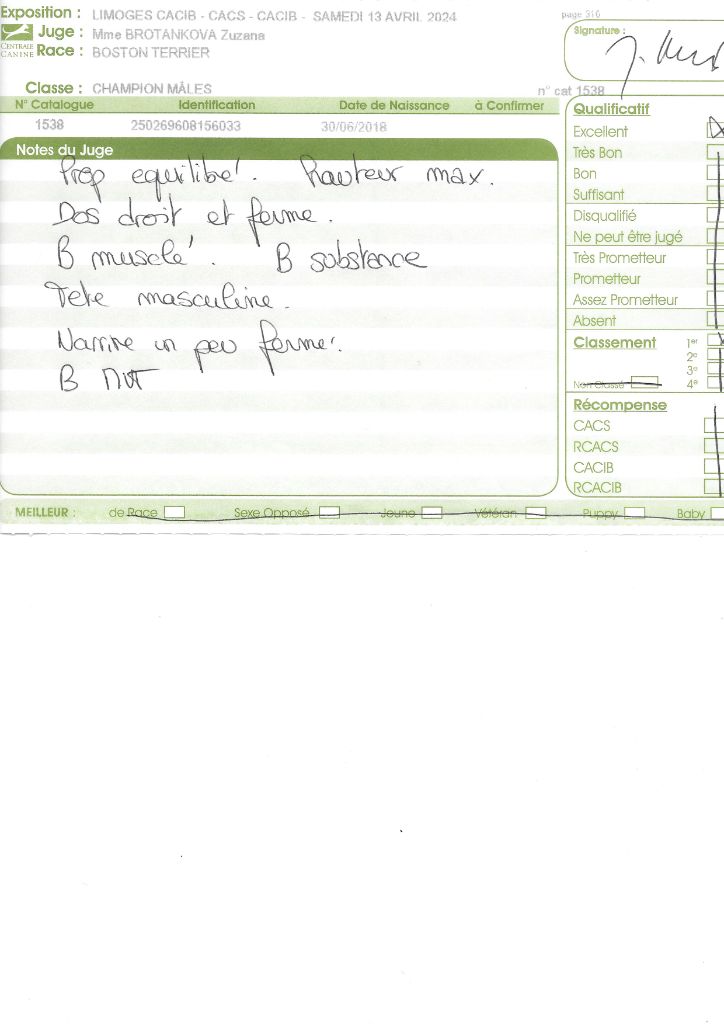 Exposition : LIMOGES CACIB - CACS - CACIB - SAMEDI 13 AVRIL 2024
page 316
Signature :
CENTRALE CANINE
Juge : Mme BROTANKOVA Zuzana
Race : BOSTON TERRIER
Classe : CHAMPION MÂLES
n° cat 1538
N° Catalogue Identification Date de Naissance à Confirmer
1538 250269608156033 30/06/2018
Notes du Juge
Prop equilibré. Hauteur max.
Dos droit et ferme.
B musclé. B substance
Tete masculine.
Narrine un peu fermé.
B MVT
Qualificatif
Excellent
Très Bon
Bon
Suffisant
Disqualifié
Ne peut être jugé
Très Prometteur
Prometteur
Assez Prometteur
Absent
Classement 1er
2e
3e
Non Classé 4e
Récompense
CACS
RCACS
CACIB
RCACIB
MEILLEUR : de Race Sexe Opposé Jeune Vétéran Puppy Baby